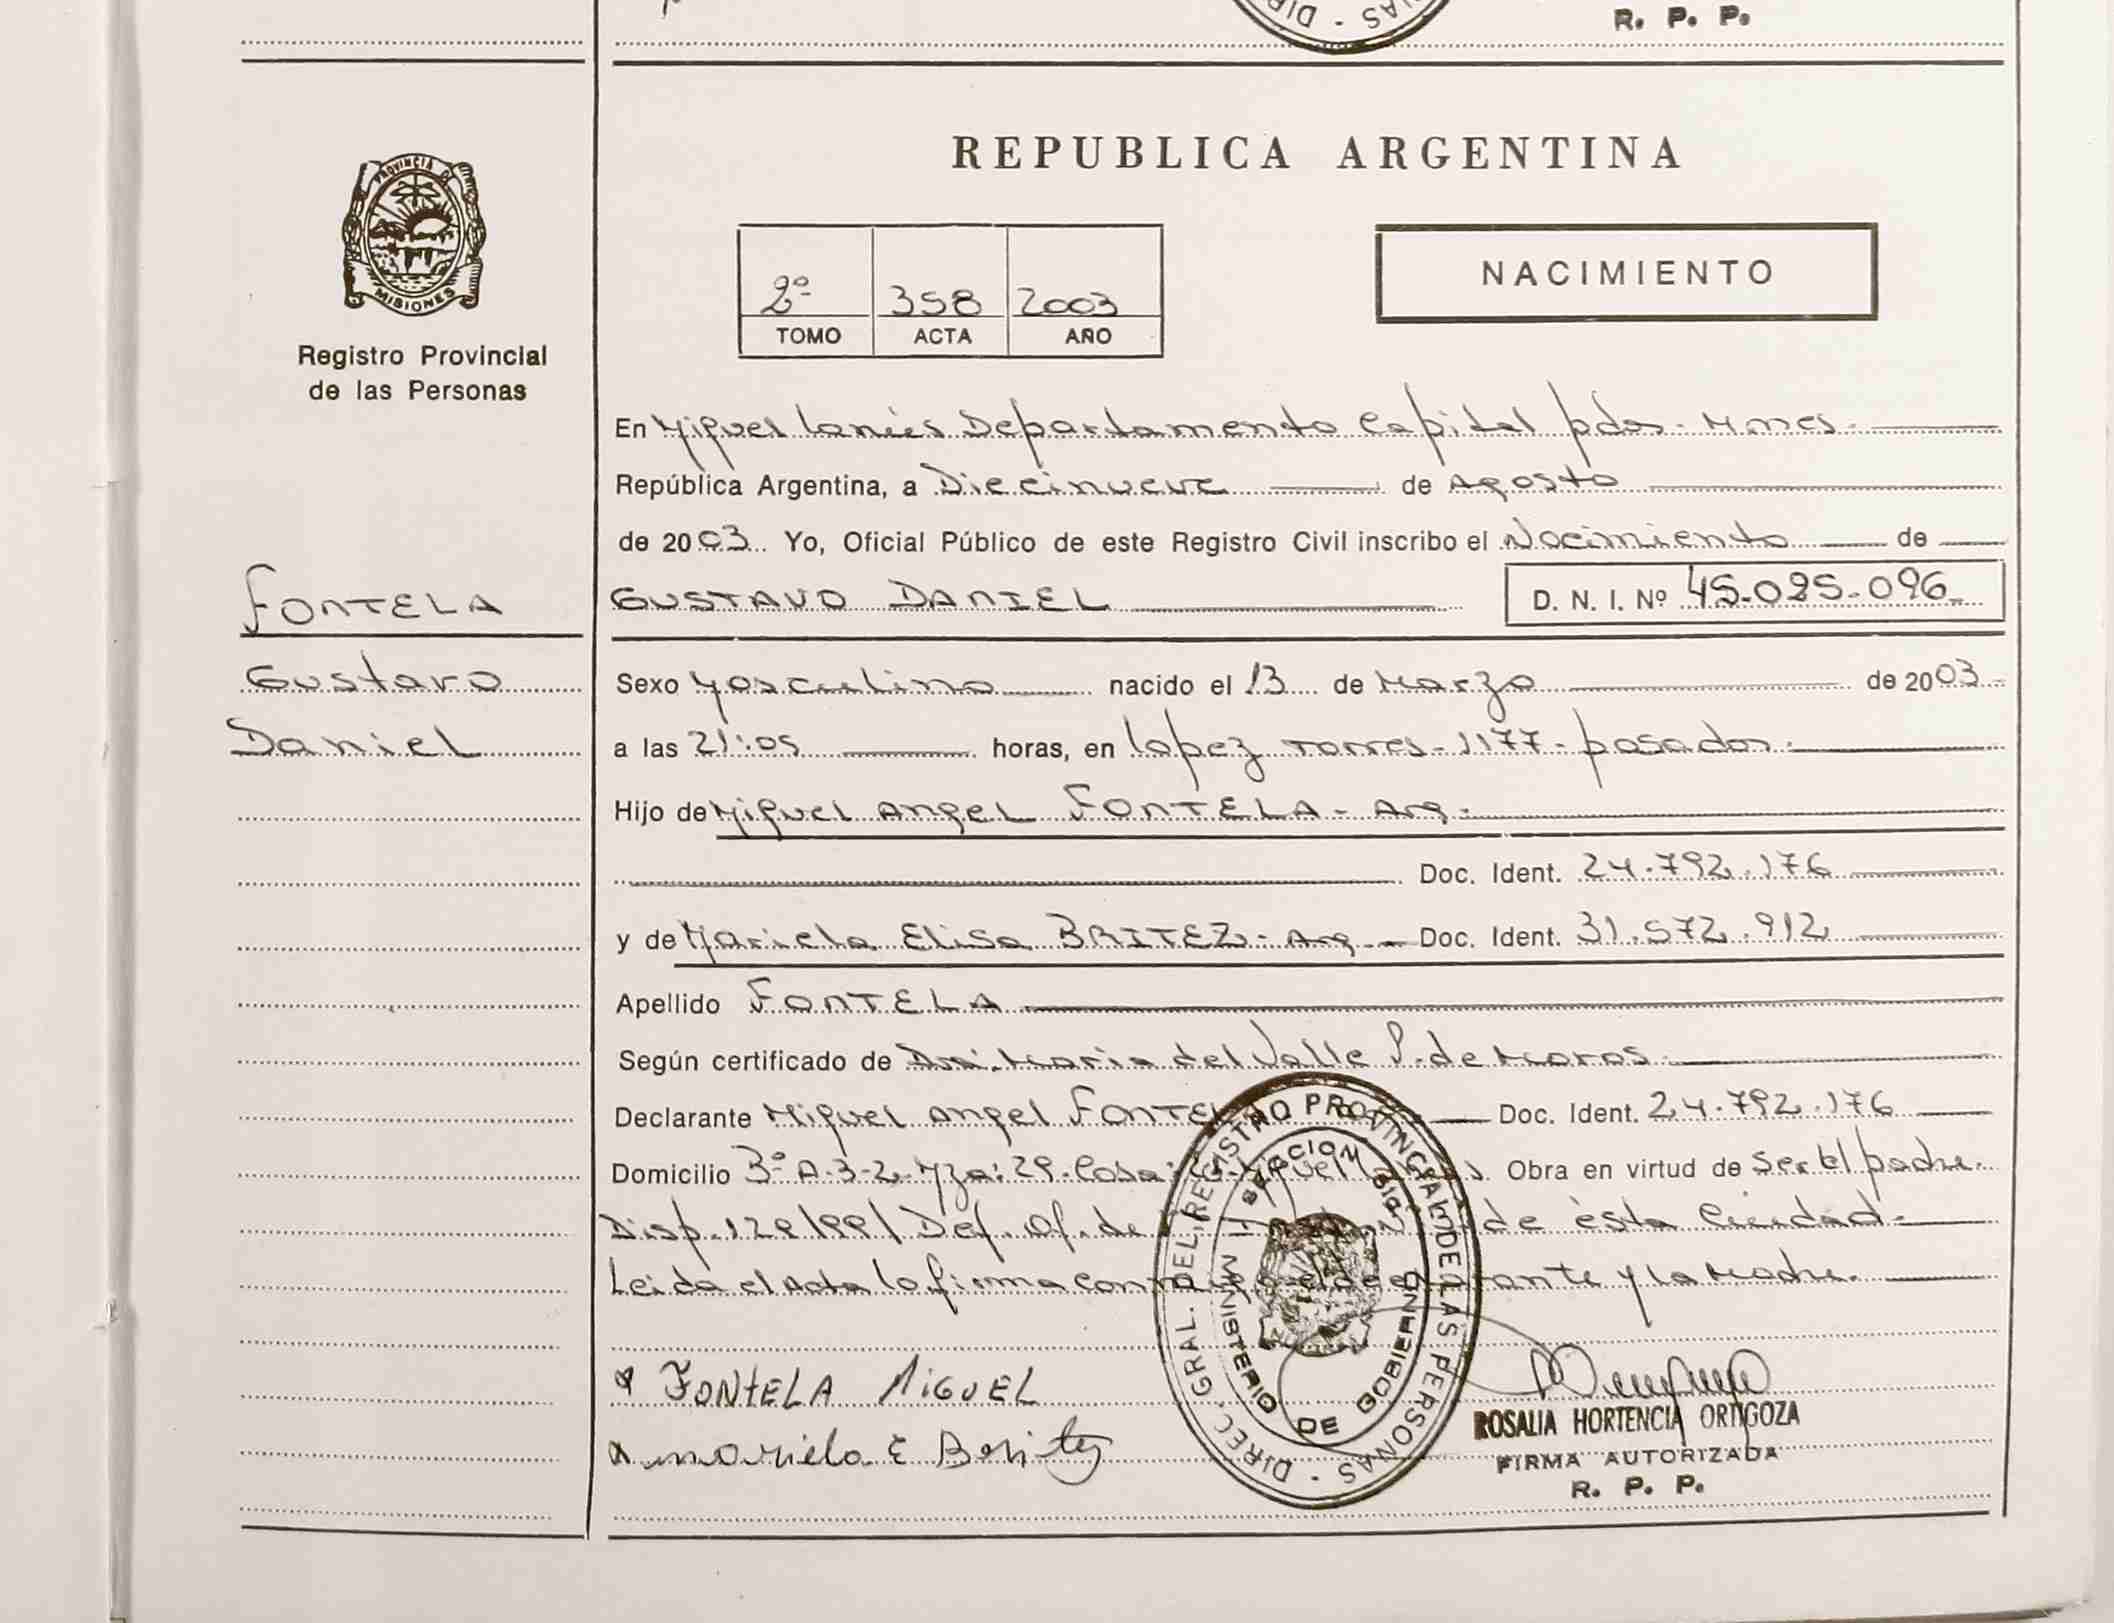 R. P. P.
REPUBLICA ARGENTINA
PROVINCIA DE
MISIONES
Registro Provincial
de las Personas
2º 358 2003
TOMO ACTA AÑO
NACIMIENTO
En Miguel Lanús Departamento Capital pdas. Mnes.
República Argentina, a Diecinueve de Agosto
de 2003 Yo, Oficial Público de este Registro Civil inscribo el Nacimiento de
FONTELA
GUSTAVO DANIEL D. N. I. Nº 45.025.096
Gustavo
Daniel
Sexo Masculino nacido el 13 de Marzo de 2003
a las 21:05 horas, en Lopez Torres - 1177 - posadas.
Hijo de Miguel Angel FONTELA - Arg -
Doc. Ident. 24.792.176
y de Mariela Elisa BRITEZ - Arg - Doc. Ident. 31.572.912
Apellido FONTELA
Según certificado de Maria del Valle P. de Moros
Declarante Miguel Angel FONTELA Doc. Ident. 24.792.176
Domicilio Bº A-3-2 Mza: 29 - Casa: Miguel Obra en virtud de ser el padre
Disp. 129/99/ Def. Of. de de ésta Ciudad.
Leida el acta la firma conmigo el declarante y la Madre.
FONTELA MIGUEL
mariela E Beritez
DIREC. GRAL. DEL REGISTRO PROVINCIAL DE LAS PERSONAS
MINISTERIO DE GOBIERNO
ROSALIA HORTENCIA ORTIGOZA
FIRMA AUTORIZADA
R. P. P.